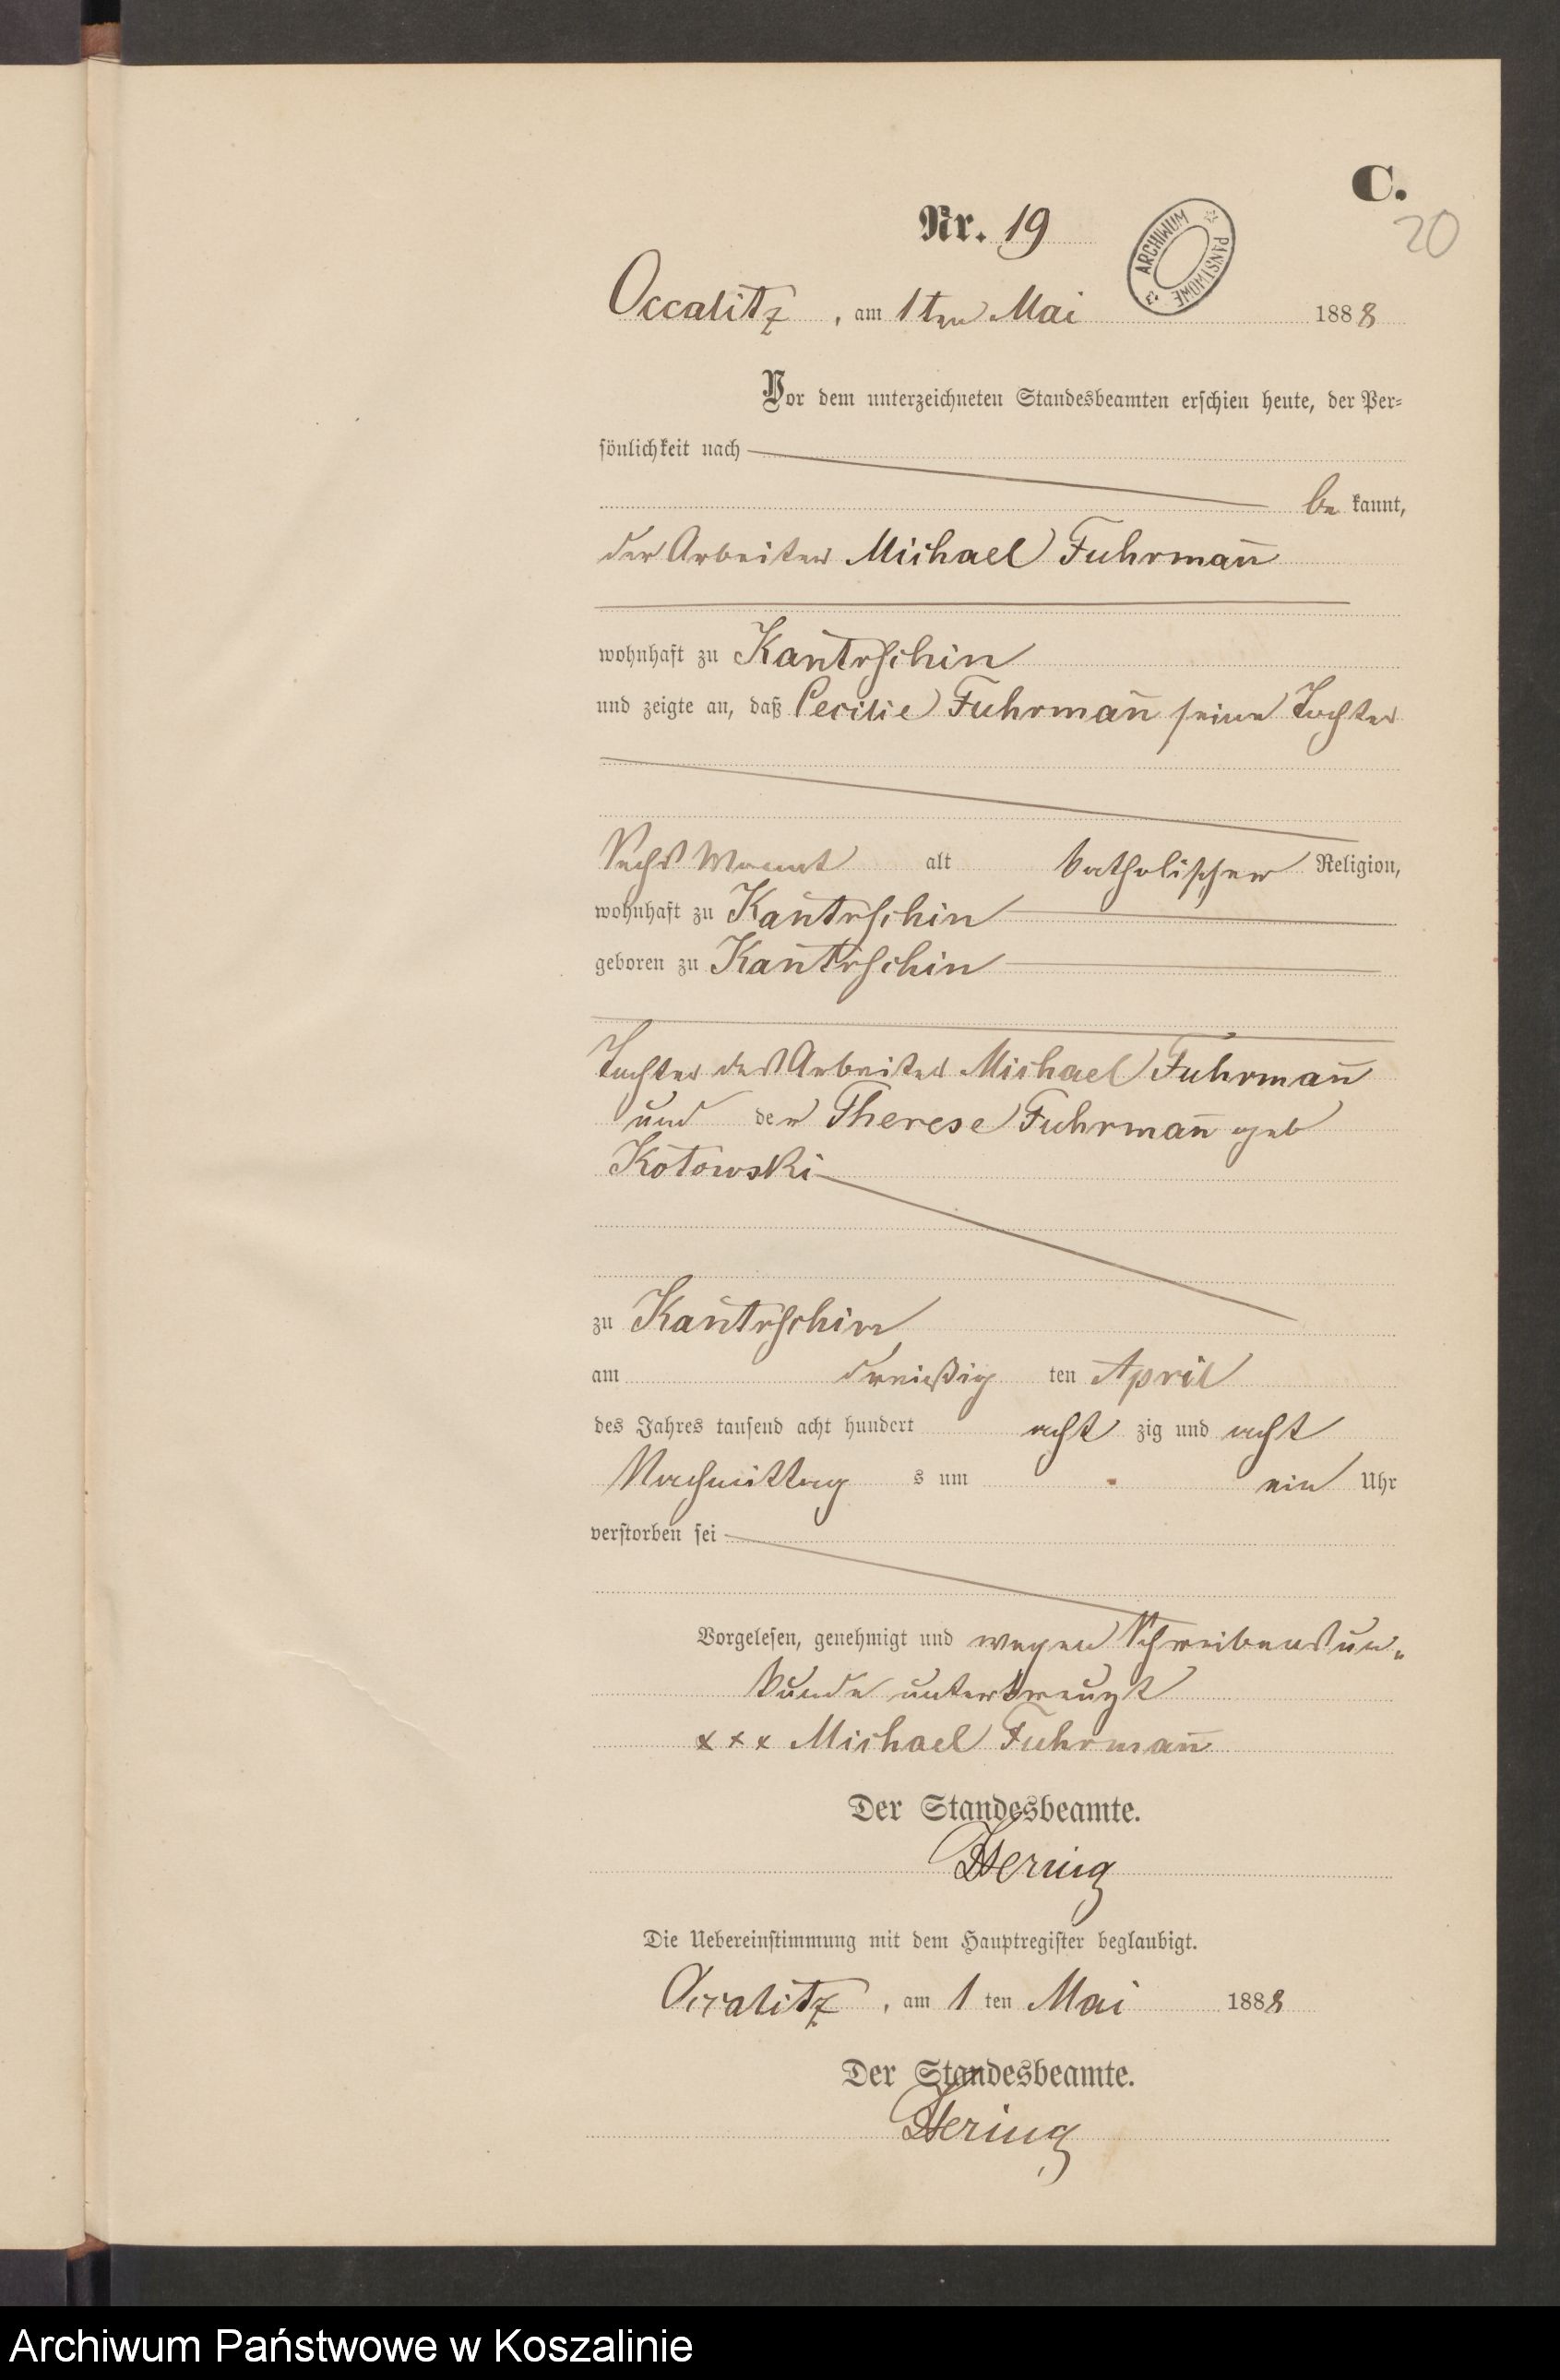 C.
20
Nr. 19
ARCHIWUM PAŃSTWOWE
Occalitz, am 1ten Mai 1888
Vor dem unterzeichneten Standesbeamten erschien heute, der Per=
sönlichkeit nach
be kannt,
der Arbeiter Michael Fuhrmañ
wohnhaft zu Kantrschin
und zeigte an, daß Cecilie Fuhrmañ seine Tochter
Sechs Monat alt katholischer Religion,
wohnhaft zu Kantrschin
geboren zu Kantrschin
Tochter des Arbeiter Michael Fuhrmañ
und der Therese Fuhrmañ geb
Kotowski
zu Kantrschin
am dreißig ten April
des Jahres tausend acht hundert acht zig und acht
Nachmittag s um ein Uhr
verstorben sei
Vorgelesen, genehmigt und wegen Schreibensun„
kunde unterkreuzt
x x x Michael Fuhrmañ
Der Standesbeamte.
Hering
Die Uebereinstimmung mit dem Hauptregister beglaubigt.
Occalitz, am 1 ten Mai 1888
Der Standesbeamte.
Hering
Archiwum Państwowe w Koszalinie